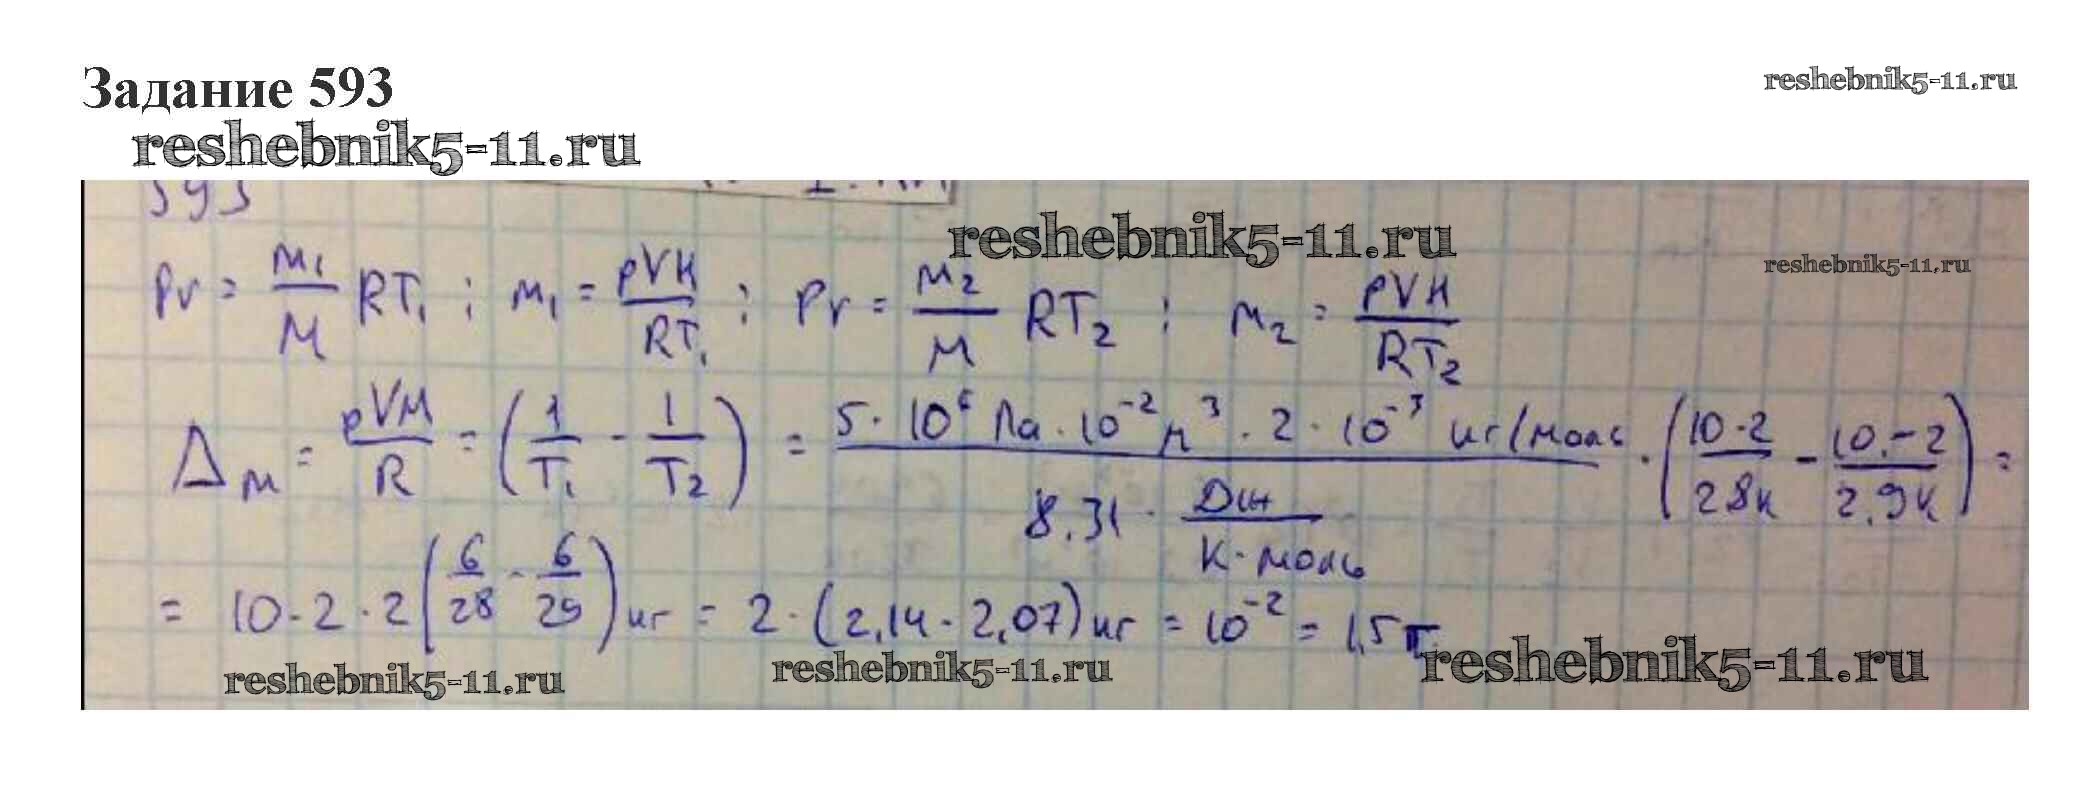 Задание 593
reshebnik5-11.ru
reshebnik5-11.ru
593
reshebnik5-11.ru
reshebnik5-11.ru
PV = m₁/M RT₁ ; m₁ = pVM/RT₁ ; PV = m₂/M RT₂ ; m₂ = pVM/RT₂
Δm = pVM/R = (1/T₁ - 1/T₂) = 5·10⁶ Па·10⁻² м³ · 2·10⁻³ кг/моль / 8.31 · Дж/К·моль · (10-2/28к - 10.-2/2.9к) =
= 10-2·2(6/28 - 6/29)кг = 2·(2,14-2,07)кг = 10⁻² = 1,5 г
reshebnik5-11.ru
reshebnik5-11.ru
reshebnik5-11.ru